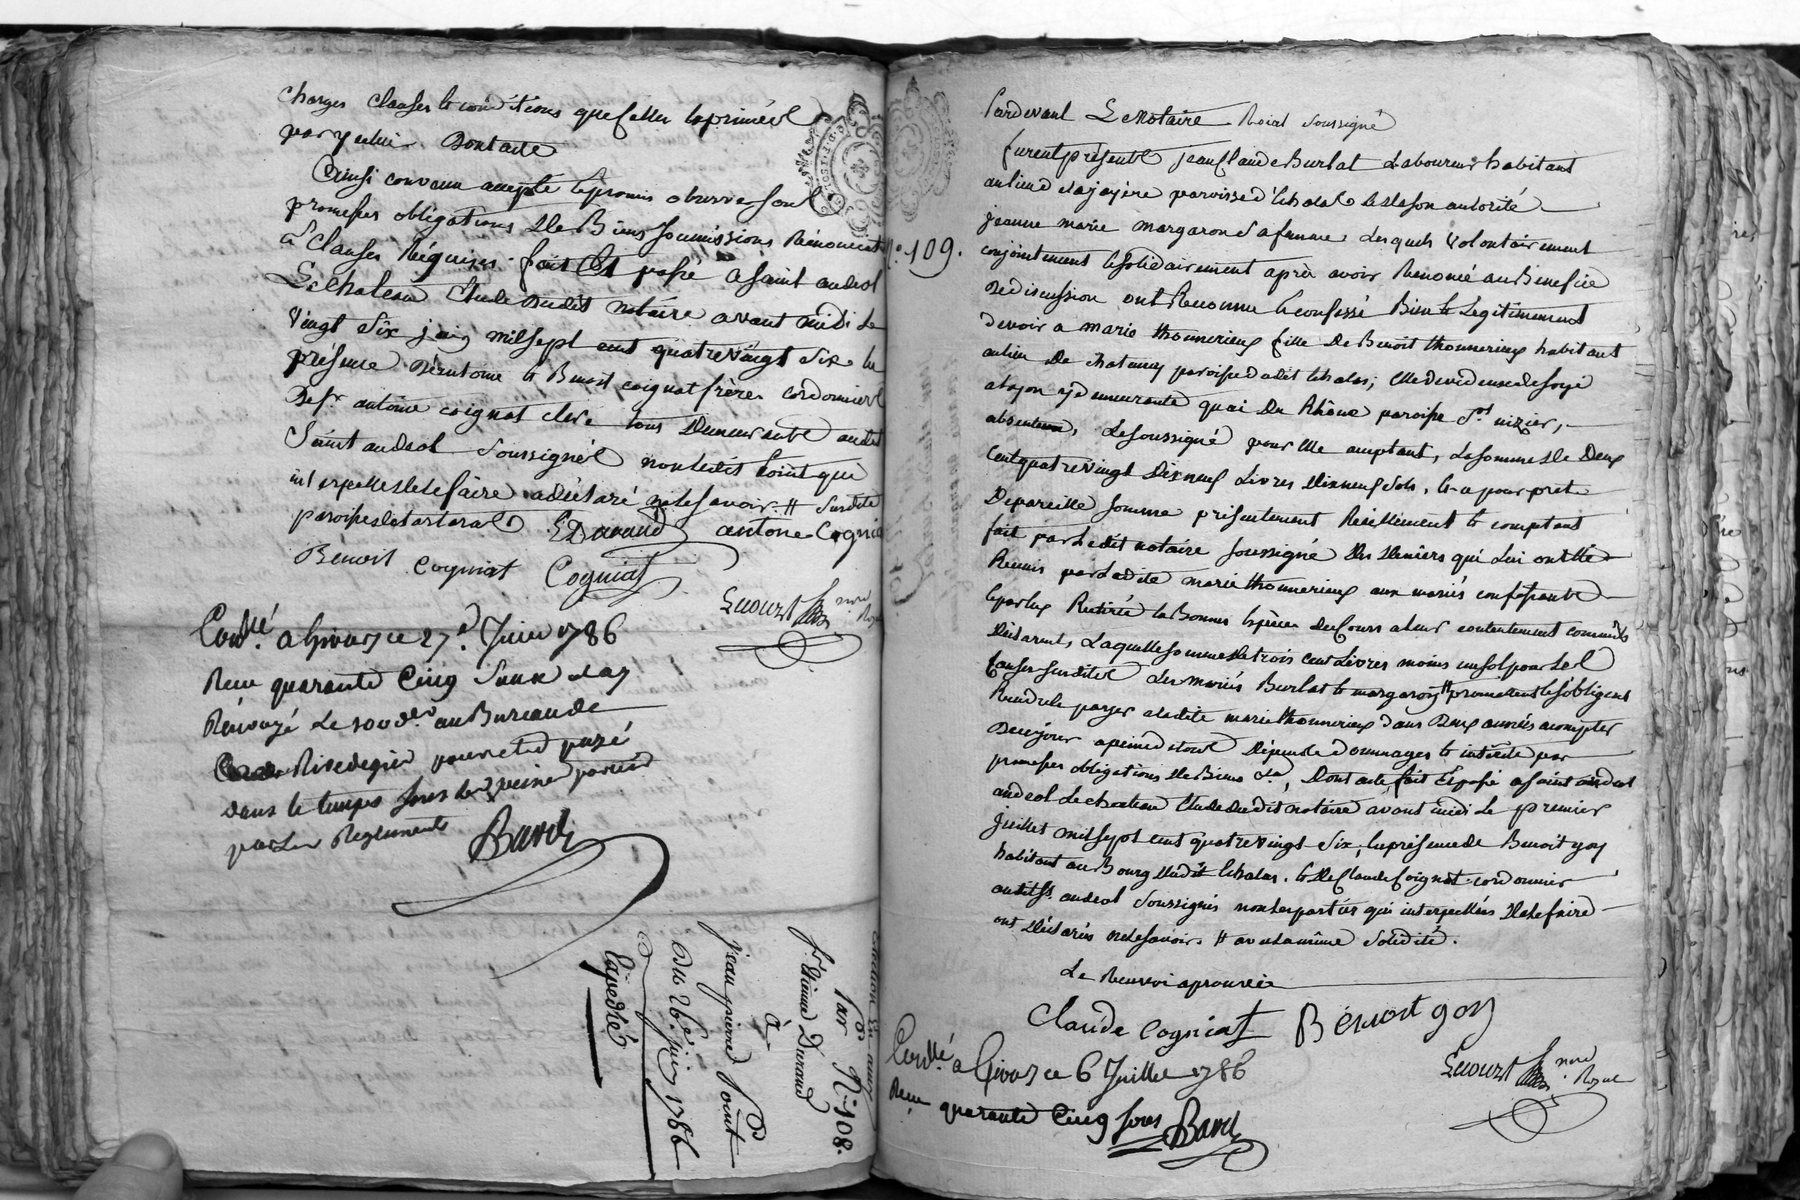 charges clauses & conditions que celles exprimées
par yceluy Dont acte
Ainsi convenu accepté & promis observer sous
promesses obligations de Biens soumissions Renonciat
& clauses Requises. fait et passé a saint andeol
Le chateau Etude dudit notaire avant midi le
Vingt six juin mil sept cent quatre vingt six en
présence d'antoine & Benoit coignat frères cordonniers
De sr. antoine coignat clerc tous demeurants audit
Saint andeol Soussignés non ledit point que
interpellé de le faire a déclaré ne le savoir. # Susdite
paroisse de tartaras
EDurand antoine Cognia
Benoit Cogniat Cogniat
Contllé a Givors ce 27e. Juin 1786
Recu quarante Cinq Sous
Renvoyé Le 100 der. au Bureau de
Rivedegier pour etre payé
dans le temps sous les peines portées
par les Reglements
Bavd
Par
N.° 108.
sr. Etienne Durand
à
jean pierre Point
Du 26e. juin 1786
Expedié
N.° 109.
Pardevant Le Notaire Roial Soussigné
furent présents jean Claude Burlat Laboureur habitant
au lieu de paroisse d'Echalas & de son autorité
jeanne marie margaron sa femme Lesquels Volontairement
conjointement & solidairement après avoir Renoncé au Benefice
de discussion ont Reconnu & confessé Bien & Legitimement
devoir a marie thonnerieux fille de Benoit thonnerieux habitant
au lieu de chatanay paroisse dudit Echalas; elle devideuse de soye
a lyon y demeurante quai du Rhône paroisse St. nizier,
absente, Le soussigné pour elle acceptant, La somme de Deux
Cent quatre vingt Dix neuf Livres Dix neuf sols, & a pour pret
De pareille somme présentement Réellement & comptant
fait par Ledit notaire soussigné des deniers qui lui ont été
Remis par Ladite marie thonnerieux aux mariés confessants
& par eux Retirée en Bonnes espèces de Cours a leur contentement comme ils
Déclarent, Laquelle somme de trois cent livres moins un sol pour les
causes susdites Les mariés Burlat & margaron # promettent & s'obligent
Rendre & payer a ladite marie thonnerieux dans Deux années a compter
De ce jour a peine de tous dépends dommages & intérêts par
promesses obligations de Biens &a, Dont acte, fait & passé a saint andeol
andeol Le chateau Etude dudit notaire avant midi Le premier
juillet mil sept cent quatre vingt six, en présence de Benoit goy
habitant au Bourg dudit Echalas. & de Claude Coignat cordonnier
audit St. andeol Soussignés non les parties qui interpellées de le faire
ont déclarés ne le savoir. # avec la même solidité.
Le Renvoi aprouvé
Claude Cogniat Bénoit goy
Contllé. a Givors ce 6 Juillet 1786
Recu quarante Cinq sous Bavd